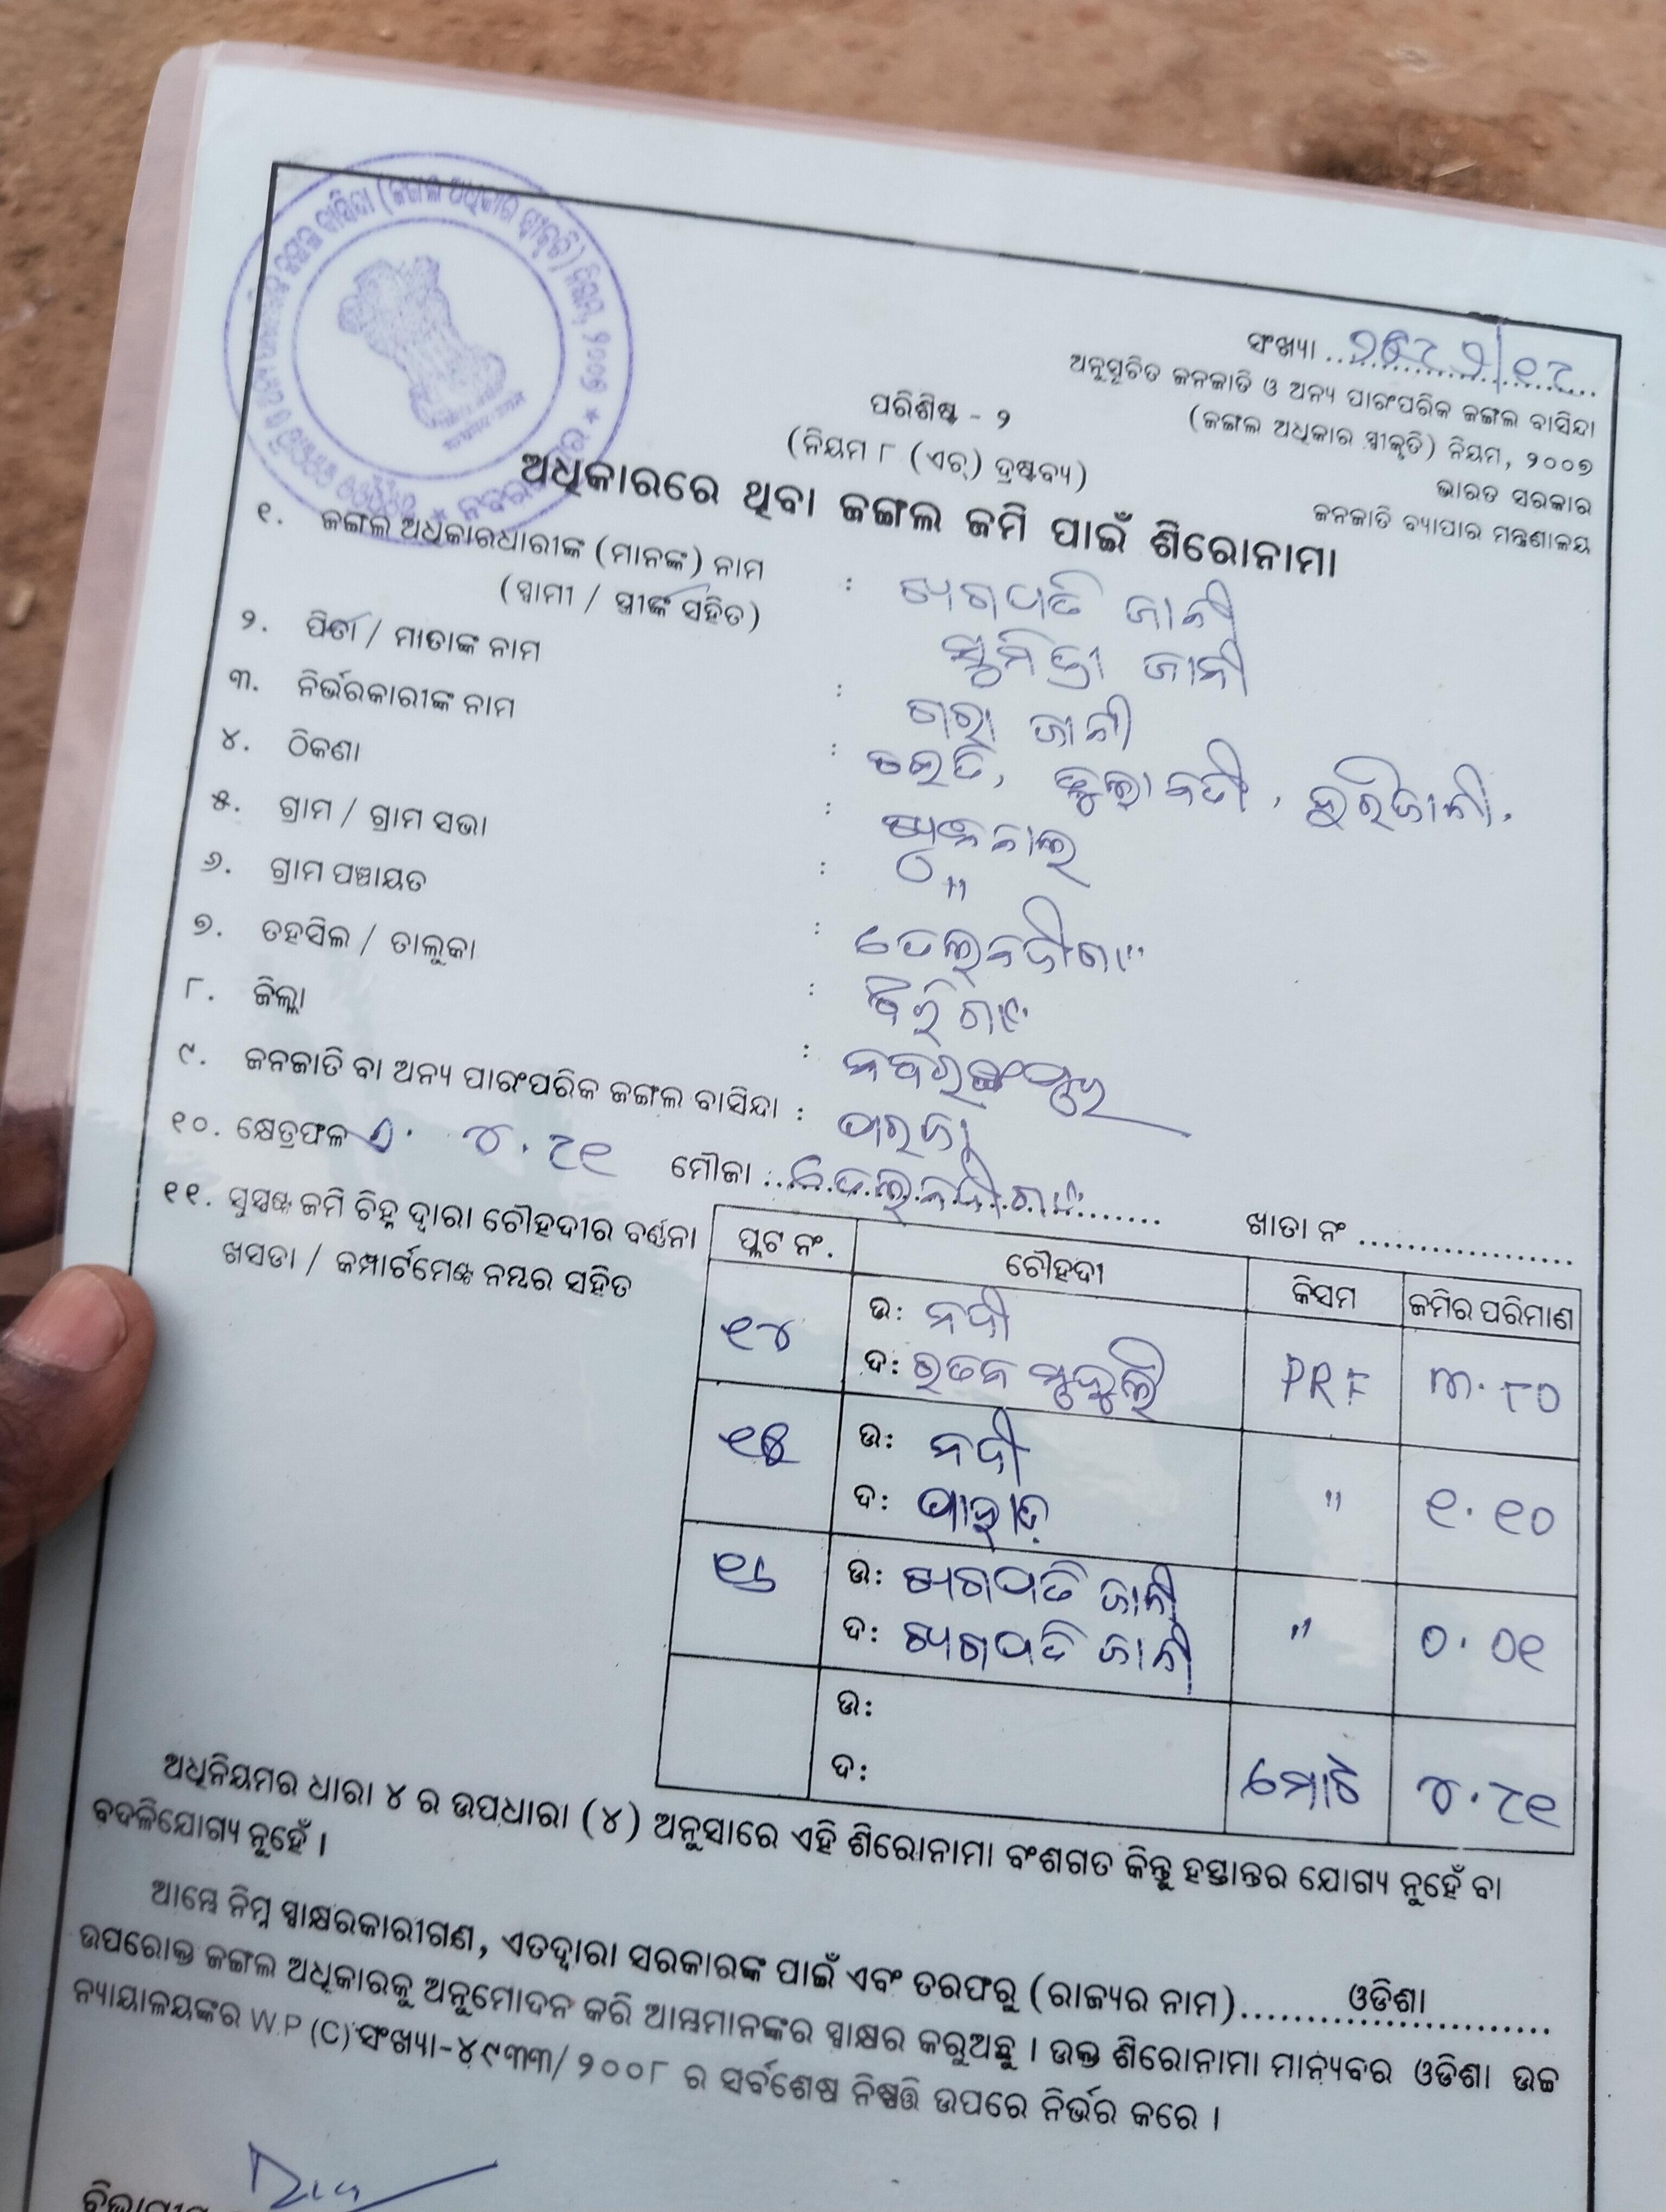 ସଂଖ୍ୟା
ଅନୁସୂଚିତ ଜନଜାତି ଓ ଅନ୍ୟ ପାରଂପରିକ ଜଙ୍ଗଲ ବାସିନ୍ଦା
(ଜଙ୍ଗଲ ଅଧିକାର ସ୍ୱୀକୃତି) ନିୟମ, ୨୦୦୭
ଭାରତ ସରକାର
ଜନଜାତି ବ୍ୟାପାର ମନ୍ତ୍ରଣାଳୟ
ପରିଶିଷ୍ଟ - ୨
(ନିୟମ ୮ (ଏଚ୍) ଦ୍ରଷ୍ଟବ୍ୟ)
ଅଧିକାରରେ ଥିବା ଜଙ୍ଗଲ ଜମି ପାଇଁ ଶିରୋନାମା
୧. ଜଙ୍ଗଲ ଅଧିକାରଧାରୀଙ୍କ (ମାନଙ୍କ) ନାମ : ଖଗପତି ଜାନୀ
(ସ୍ୱାମୀ / ସ୍ତ୍ରୀଙ୍କ ସହିତ) ସୁମିତ୍ରା ଜାନୀ
୨. ପିତା / ମାତାଙ୍କ ନାମ : ଜାନୀ
୩. ନିର୍ଭରକାରୀଙ୍କ ନାମ :
୪. ଠିକଣା :
୫. ଗ୍ରାମ / ଗ୍ରାମ ସଭା : "
୬. ଗ୍ରାମ ପଞ୍ଚାୟତ :
୭. ତହସିଲ / ତାଲୁକା :
୮. ଜିଲ୍ଲା : ନବରଙ୍ଗପୁର
୯. ଜନଜାତି ବା ଅନ୍ୟ ପାରଂପରିକ ଜଙ୍ଗଲ ବାସିନ୍ଦା : ପରଜା
୧୦. କ୍ଷେତ୍ରଫଳ ୪.୯୧ ମୌଜା ଖାତା ନଂ
୧୧. ସୁସ୍ପଷ୍ଟ ଜମି ଚିହ୍ନ ଦ୍ୱାରା ଚୌହଦୀର ବର୍ଣ୍ଣନା
ଖସଡା / କମ୍ପାର୍ଟମେଣ୍ଟ ନମ୍ବର ସହିତ
ପ୍ଲଟ ନଂ. ଚୌହଦୀ କିସମ ଜମିର ପରିମାଣ
୧୪ ଉ: ନଦୀ PRF ୩.୮୦
ଦ: ରତନ
୧୫ ଉ: ନଦୀ " ୧.୧୦
ଦ: ପାହାଡ଼
୧୬ ଉ: ଖଗପତି ଜାନୀ " ୦.୦୧
ଦ: ଖଗପତି ଜାନୀ
ଉ:
ଦ: ମୋଟ ୪.୯୧
ଅଧିନିୟମର ଧାରା ୪ ର ଉପଧାରା (୪) ଅନୁସାରେ ଏହି ଶିରୋନାମା ବଂଶଗତ କିନ୍ତୁ ହସ୍ତାନ୍ତର ଯୋଗ୍ୟ ନୁହେଁ ବା
ବଦଳିଯୋଗ୍ୟ ନୁହେଁ ।
ଆମ୍ଭେ ନିମ୍ନ ସ୍ୱାକ୍ଷରକାରୀଗଣ, ଏତଦ୍ୱାରା ସରକାରଙ୍କ ପାଇଁ ଏବଂ ତରଫରୁ (ରାଜ୍ୟର ନାମ) ଓଡିଶା
ଉପରୋକ୍ତ ଜଙ୍ଗଲ ଅଧିକାରକୁ ଅନୁମୋଦନ କରି ଆମ୍ଭମାନଙ୍କର ସ୍ୱାକ୍ଷର କରୁଅଛୁ । ଉକ୍ତ ଶିରୋନାମା ମାନ୍ୟବର ଓଡିଶା ଉଚ୍ଚ
ନ୍ୟାୟାଳୟଙ୍କର W.P (C) ସଂଖ୍ୟା-୪୯୩୩/୨୦୦୮ ର ସର୍ବଶେଷ ନିଷ୍ପତ୍ତି ଉପରେ ନିର୍ଭର କରେ ।